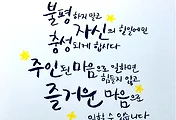 불평하지 말고 자신의 할일에만
충성되게 합시다
주인된 마음으로 일하면
힘들지 않고
즐거운 마음으로
일할 수 있습니다